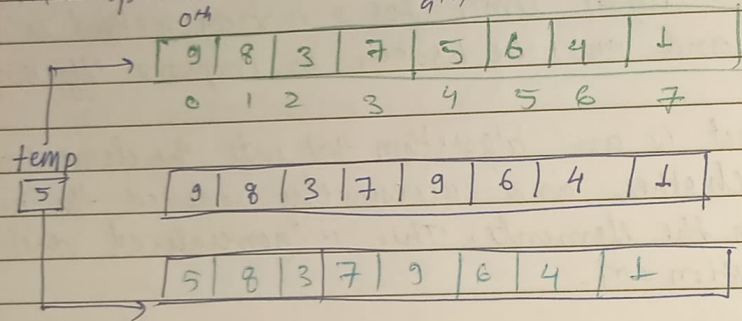 0th
9 8 3 7 5 6 4 1
0 1 2 3 4 5 6 7
temp
5
9 8 3 7 9 6 4 1
5 8 3 7 9 6 4 1